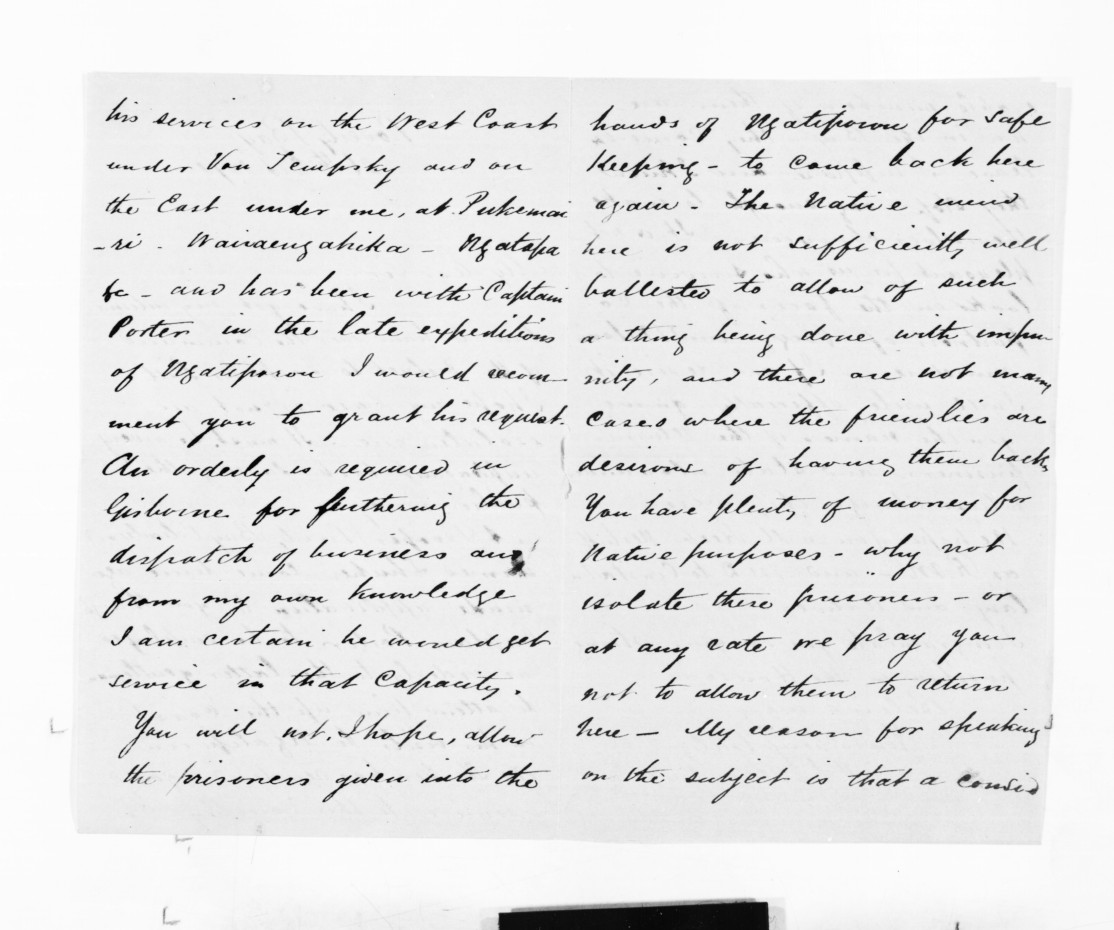 his services on the West Coast
under Von Tempsky and on
the East under me, at Pukemai
-ri - Wairaengahika - Ngatapa
&c - and has been with Captain
Porter in the late expeditions
of Ngatiporou I would recom-
ment you to grant his request.
An orderly is required in
Gisborne for furthering the
dispatch of business and
from my own knowledge
I am certain he would get
service in that capacity.
You will not, I hope, allow
the prisoners given into the
hands of Ngatiporou for safe
keeping - to come back here
again - The Native mind
here is not sufficiently well
ballested to allow of such
a thing being done with impu
nity, and there are not many
cases where the friendlies are
desirous of having them back.
You have plenty of money for
Native purposes - why not
isolate these prisoners - or
at any rate we pray you
not to allow them to return
here - My reason for speaking
on the subject is that a consid